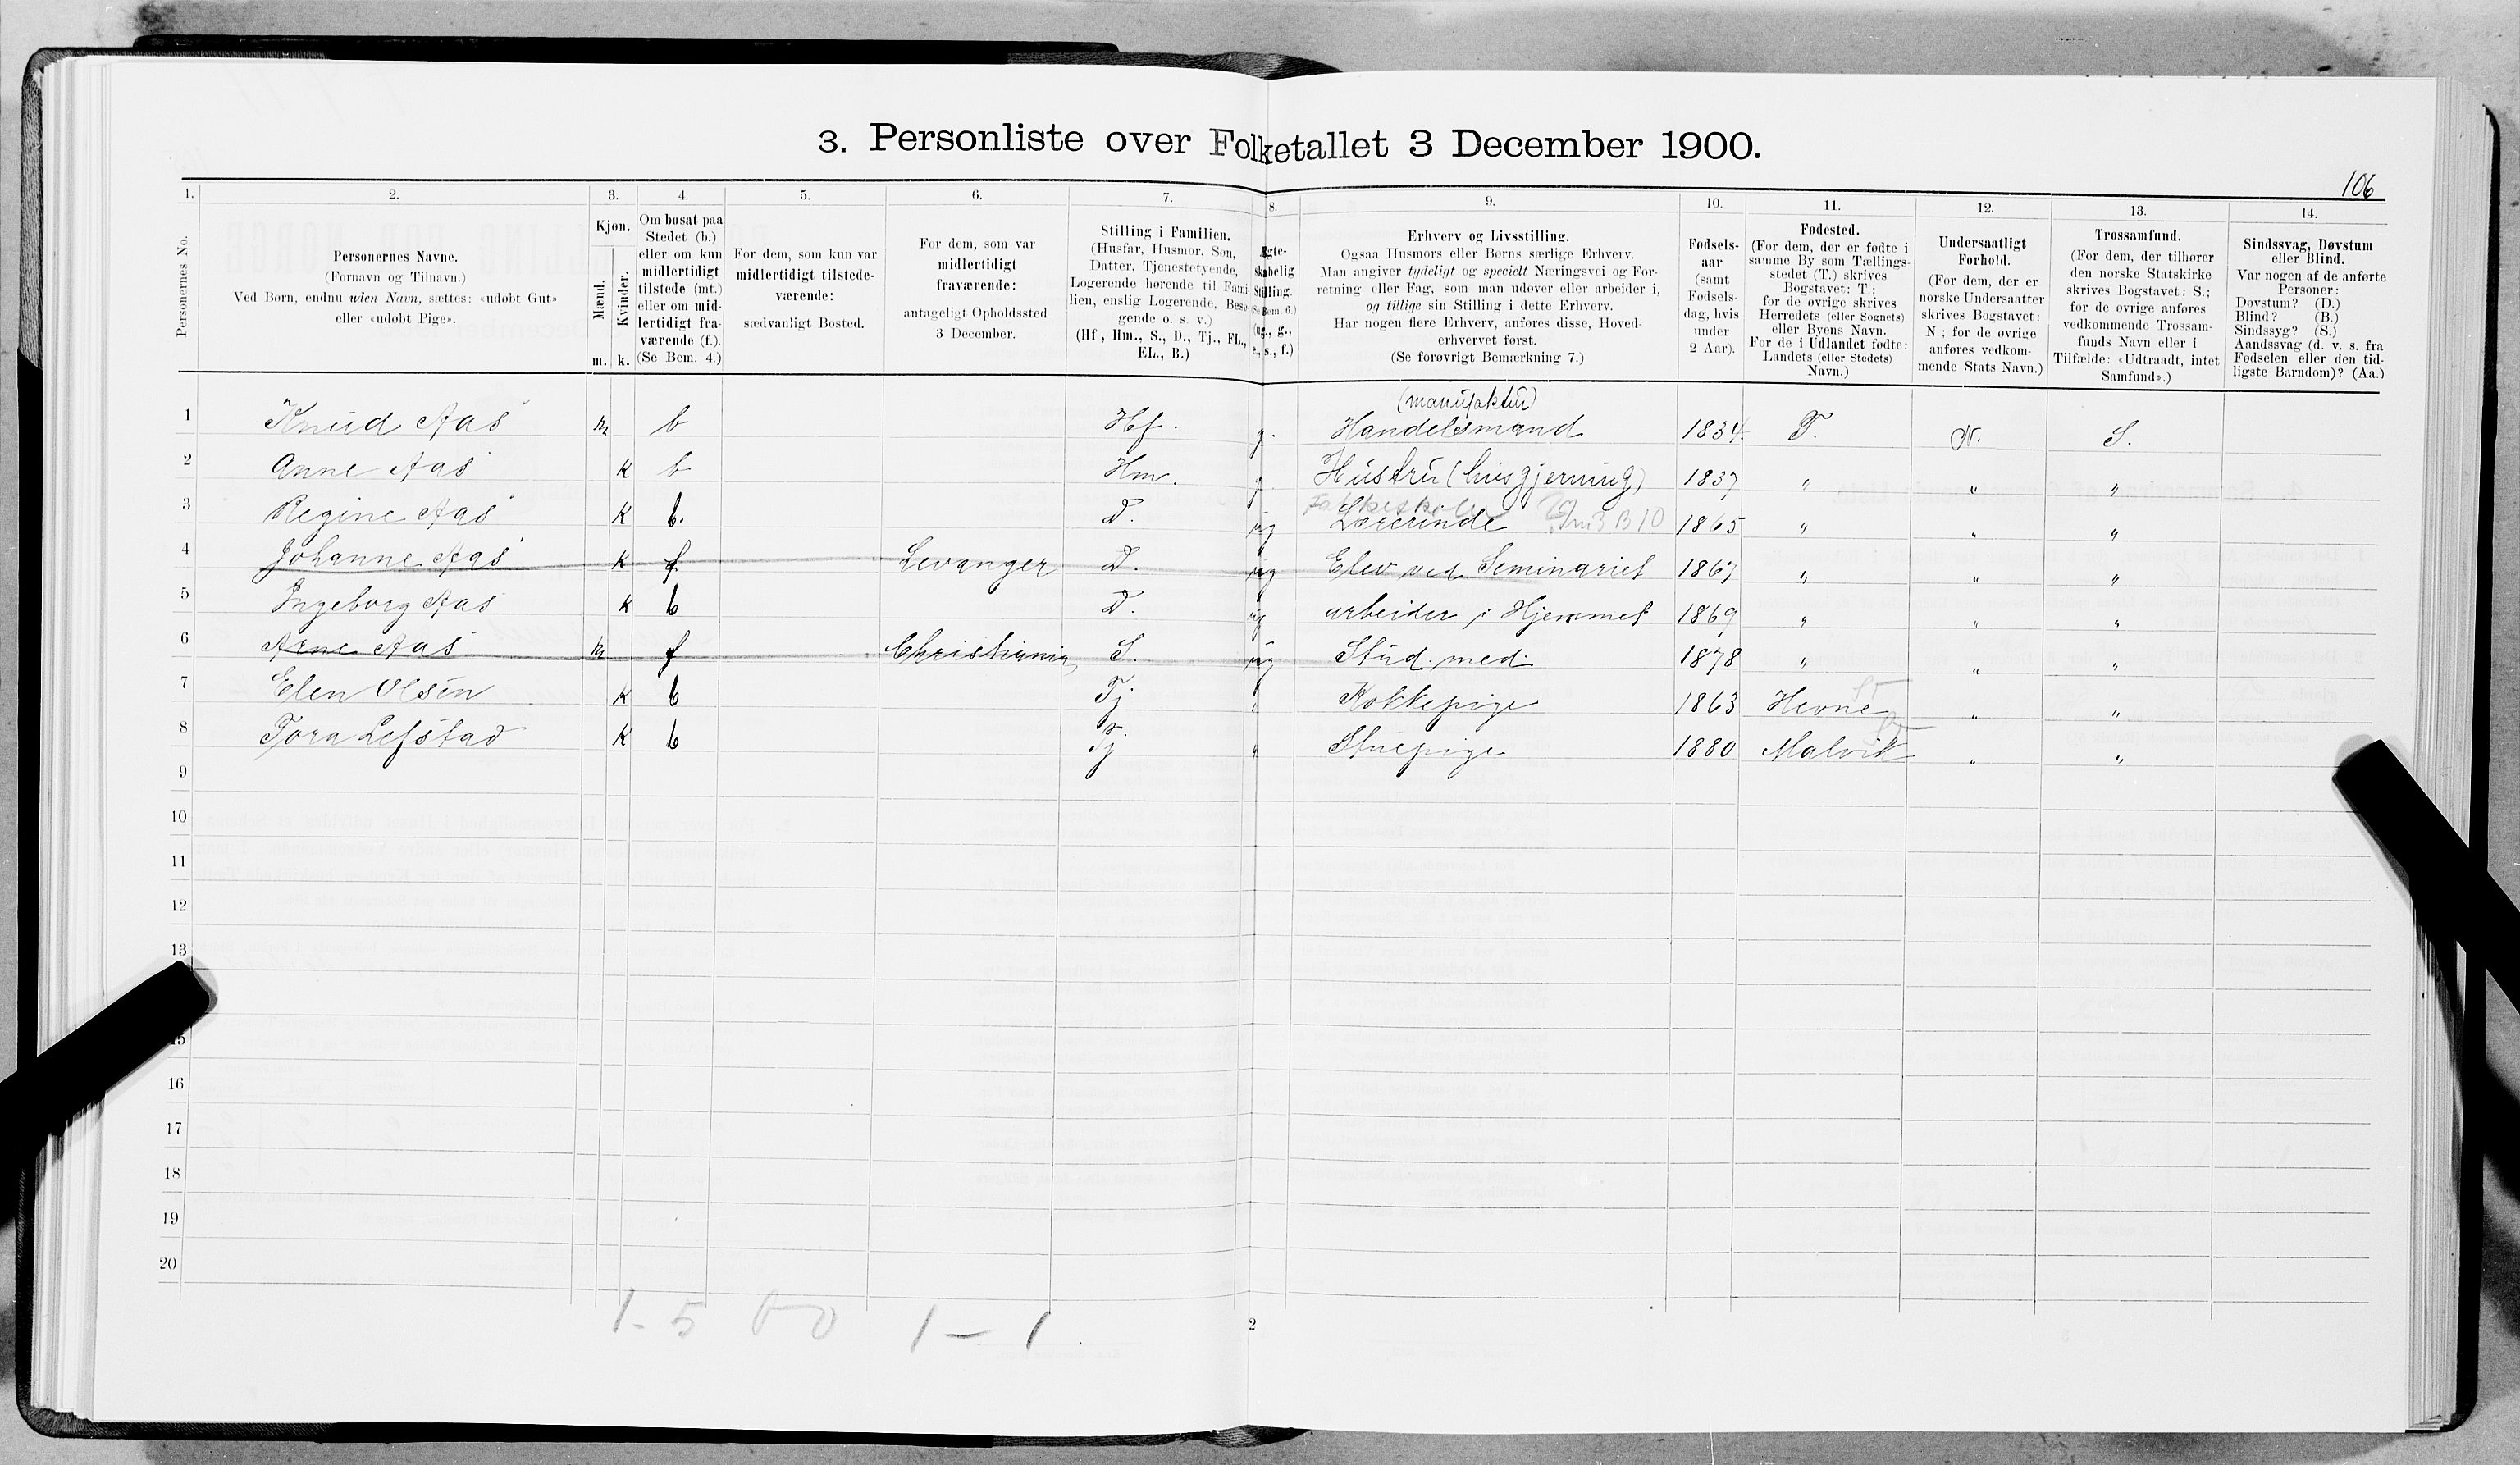 3. Personliste over Folketallet 3 December 1900.
106
1. 2. 3. 4. 5. 6. 7. 8. 9. 10. 11. 12. 13. 14.
Personernes No.
Personernes Navne.
(Fornavn og Tilnavn.)
Ved Børn, endnu uden Navn, sættes: «udøbt Gut»
eller «udøbt Pige».
Kjøn.
Mænd.
Kvinder.
m. k.
Om bosat paa
Stedet (b.)
eller om kun
midlertidigt
tilstede (mt.)
eller om mid-
lertidigt fra-
værende (f.).
(Se Bem. 4.)
For dem, som kun var
midlertidigt tilstede-
værende:
sædvanligt Bosted.
For dem, som var
midlertidigt
fraværende:
antageligt Opholdssted
3 December.
Stilling i Familien.
(Husfar, Husmor, Søn,
Datter, Tjenestetyende,
Logerende hørende til Fami-
lien, enslig Logerende, Besø-
gende o. s. v.)
(Hf, Hm., S., D., Tj., FL.,
EL., B.)
Ægte-
skabelig
Stilling.
(Se Bem. 6.)
(ug., g.,
e., s., f.)
Erhverv og Livsstilling.
Ogsaa Husmors eller Børns særlige Erhverv.
Man angiver tydeligt og specielt Næringsvei og For-
retning eller Fag, som man udøver eller arbeider i,
og tillige sin Stilling i dette Erhverv.
Har nogen flere Erhverv, anføres disse, Hoved-
erhvervet først.
(Se forøvrigt Bemærkning 7.)
Fødsels-
aar
(samt
Fødsels-
dag, hvis
under
2 Aar).
Fødested.
(For dem, der er fødte i
samme By som Tællings-
stedet (T.) skrives
Bogstavet: T;
for de øvrige skrives
Herredets (eller Sognets)
eller Byens Navn.
For de i Udlandet fødte:
Landets (eller Stedets)
Navn.)
Undersaatligt
Forhold.
(For dem, der er
norske Undersaatter
skrives Bogstavet:
N.; for de øvrige
anføres vedkom-
mende Stats Navn.)
Trossamfund.
(For dem, der tilhører
den norske Statskirke
skrives Bogstavet: S.;
for de øvrige anføres
vedkommende Trossam-
funds Navn eller i
Tilfælde: «Udtraadt, intet
Samfund».)
Sindssvag, Døvstum
eller Blind.
Var nogen af de anførte
Personer:
Døvstum? (D.)
Blind? (B.)
Sindssyg? (S.)
Aandssvag (d. v. s. fra
Fødselen eller den tid-
ligste Barndom)? (Aa.)
(manufaktur)
1 Knud Aas m b Hf. g. Handelsmand 1834. T. N. S.
2 Anne Aas k b Hm. g Hustru (husgjerning) 1837 " " "
Folkeskolen
3 Regine Aas k b. D. ug Lærerinde B 10 1865 " " "
4 Johanne Aas k f Levanger D. ug Elev ved Seminariet 1867 " " "
5 Ingeborg Aas k b D. ug arbeider i Hjemmet 1869 " " "
6 Arne Aas m f Christiania S. ug Stud. med. 1878 " " "
7 Elen Olsen k b Tj. " Kokkepige 1863 Hevne " "
8 Tora Lefstad k b Tj " Stuepige 1880 Malvik " "
9
10
11
12
13
15
16
17
18
19
20
1 - 5 0-0 1 - 1
2